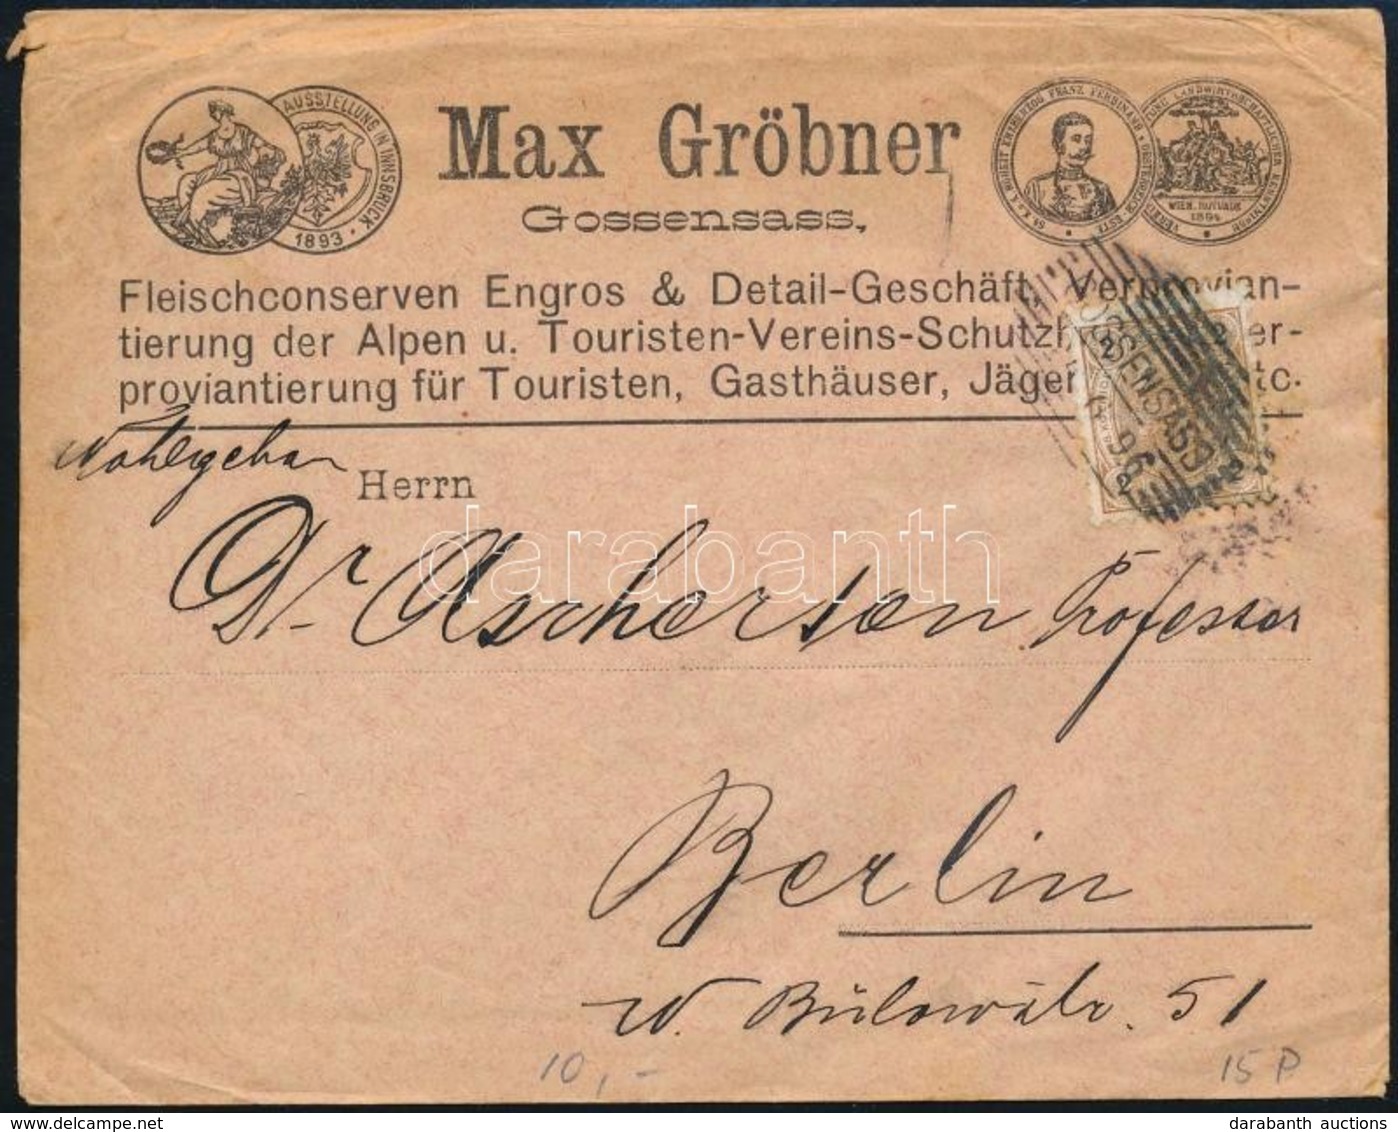 AUSSTELLUNG IN INNSBRUCK
1893
Max Gröbner
Gossensass,
FRANZ FERDINAND
WIEN, ROTUNDE
1894
Fleischconserven Engros & Detail-Geschäft, Verprovian-
tierung der Alpen u. Touristen-Vereins-Schutzh er-
proviantierung für Touristen, Gasthäuser, Jäger etc.
2 2
GOSSENSASS
96
2 2
Wohlgebor
Herrn
Dr Ascherson Professor
darabanth
Berlin
W. Bülowstr. 51
10,- 15 P
www.darabanth.com
darabanth auctions